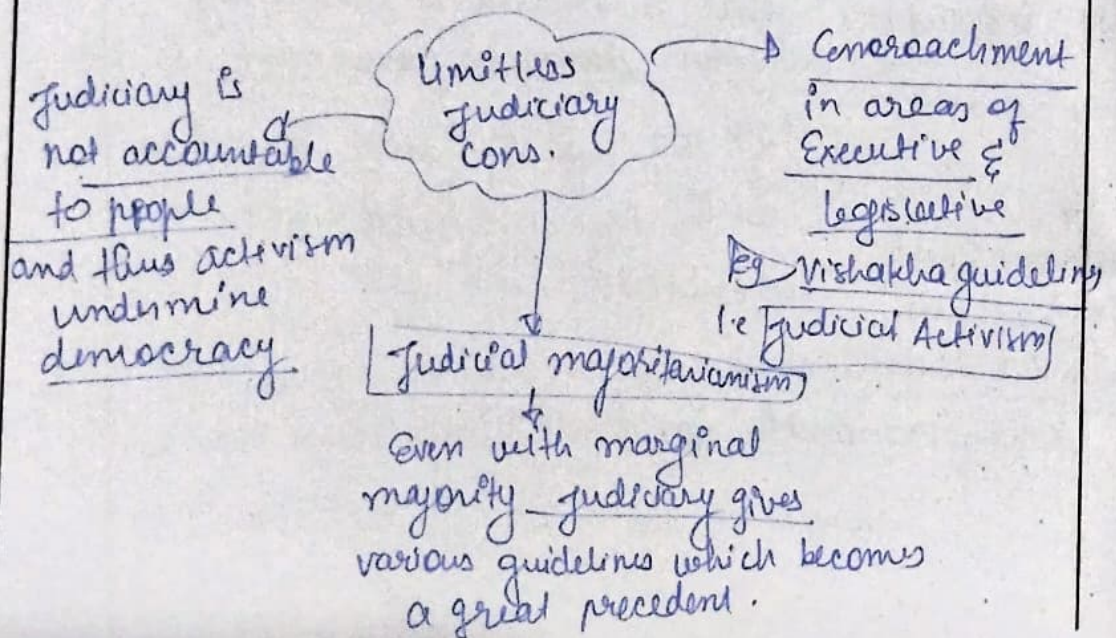 Limitless
Judiciary
cons.
Judiciary is
not accountable
to people
and thus activism
undermine
democracy
Encroachment
in areas of
Executive &
legislative
eg Vishakha guidelines
i.e Judicial Activism
Judicial majoritarianism
Even with marginal
majority judiciary gives
various guidelines which becomes
a great precedent.